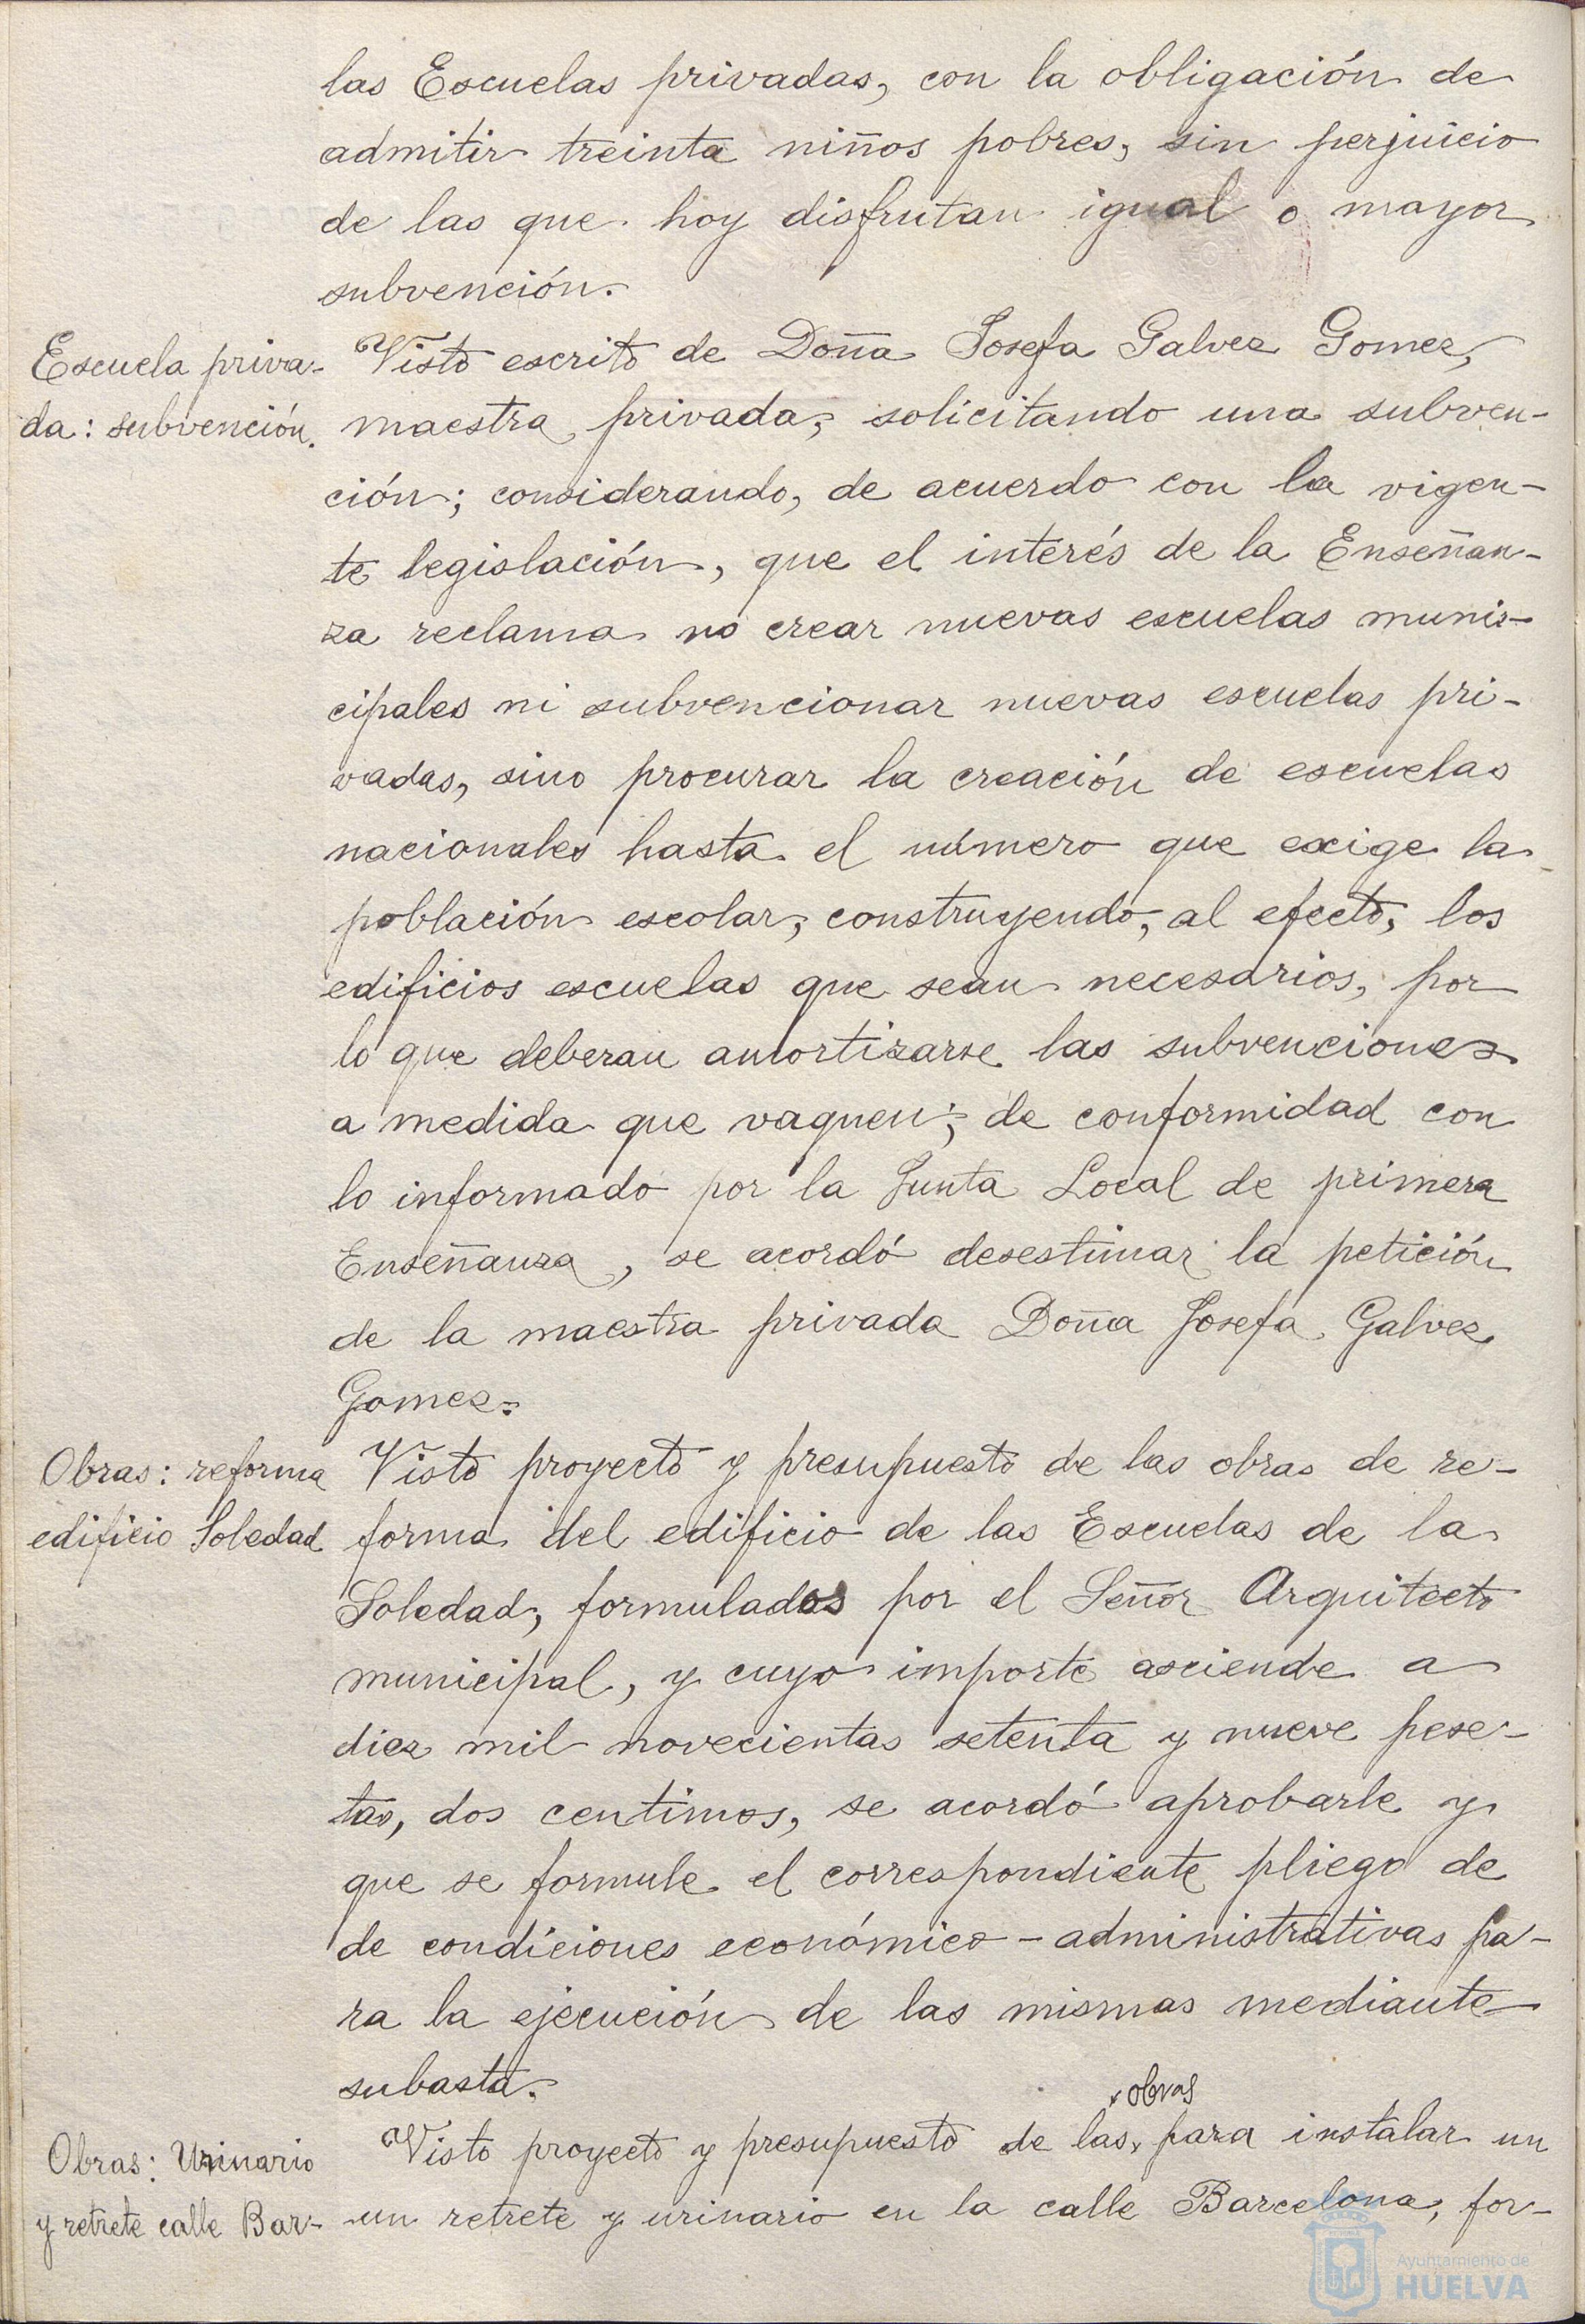 las Escuelas privadas, con la obligación de
admitir treinta niños pobres, sin perjuicio
de las que hoy disfrutan igual o mayor
subvención.
Escuela priva-
da: subvención.
Visto escrito de Doña Josefa Galvez Gomez,
maestra privada, solicitando una subven-
ción; considerando, de acuerdo con la vigen-
te legislación, que el interés de la Enseñan-
za reclama no crear nuevas escuelas muni-
cipales ni subvencionar nuevas escuelas pri-
vadas, sino procurar la creación de escuelas
nacionales hasta el número que exige la
población escolar, construyendo, al efecto, los
edificios escuelas que sean necesarios, por
lo que deberan amortizarse las subvenciones
a medida que vaquen; de conformidad con
lo informado por la Junta Local de primera
Enseñanza, se acordó desestimar la petición
de la maestra privada Doña Josefa Galvez
Gomez.
Obras: reforma
edificio Soledad
Visto proyecto y presupuesto de las obras de re-
forma del edificio de las Escuelas de la
Soledad, formulados por el Señor Arquitecto
municipal, y cuyo importe asciende a
diez mil novecientas setenta y nueve pese-
tas, dos centimos, se acordó aprobarle y
que se formule el correspondiente pliego de
de condiciones económico-administrativas pa-
ra la ejecución de las mismas mediante
subasta.
Obras: Urinario
y retrete calle Bar-
obras
Visto proyecto y presupuesto de las para instalar un
un retrete y urinario en la calle Barcelona, for-
Ayuntamiento de
HUELVA